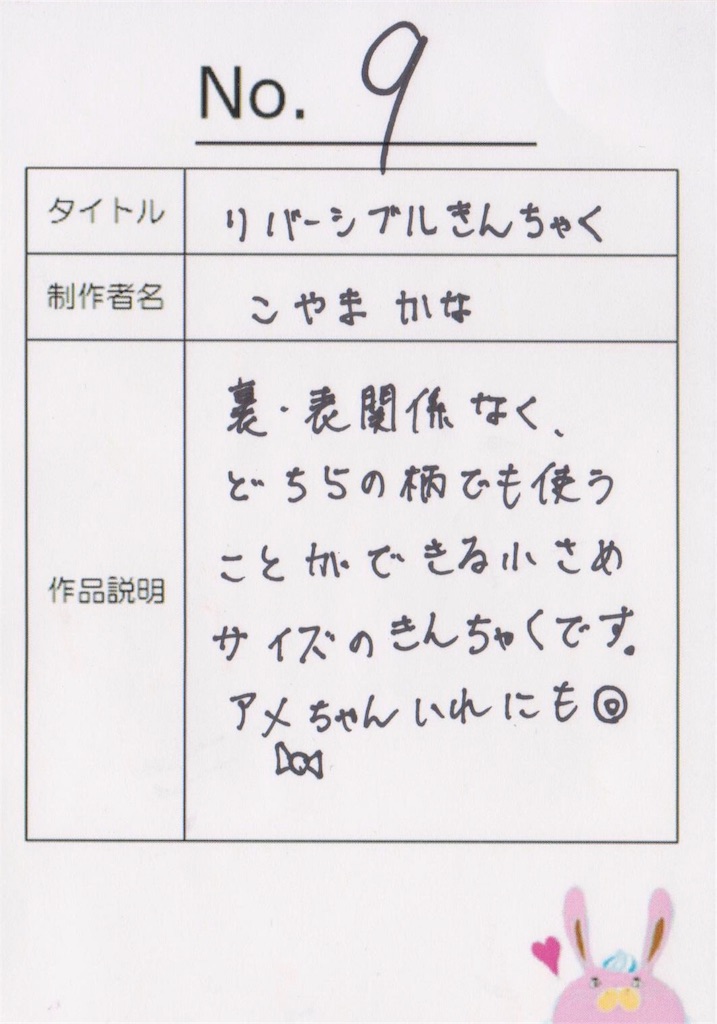 No. 9
タイトル
リバーシブルきんちゃく
制作者名
こやま かな
作品説明
裏・表関係なく、
どちらの柄でも使う
ことができる小さめ
サイズのきんちゃくです。
アメちゃんいれにも◎